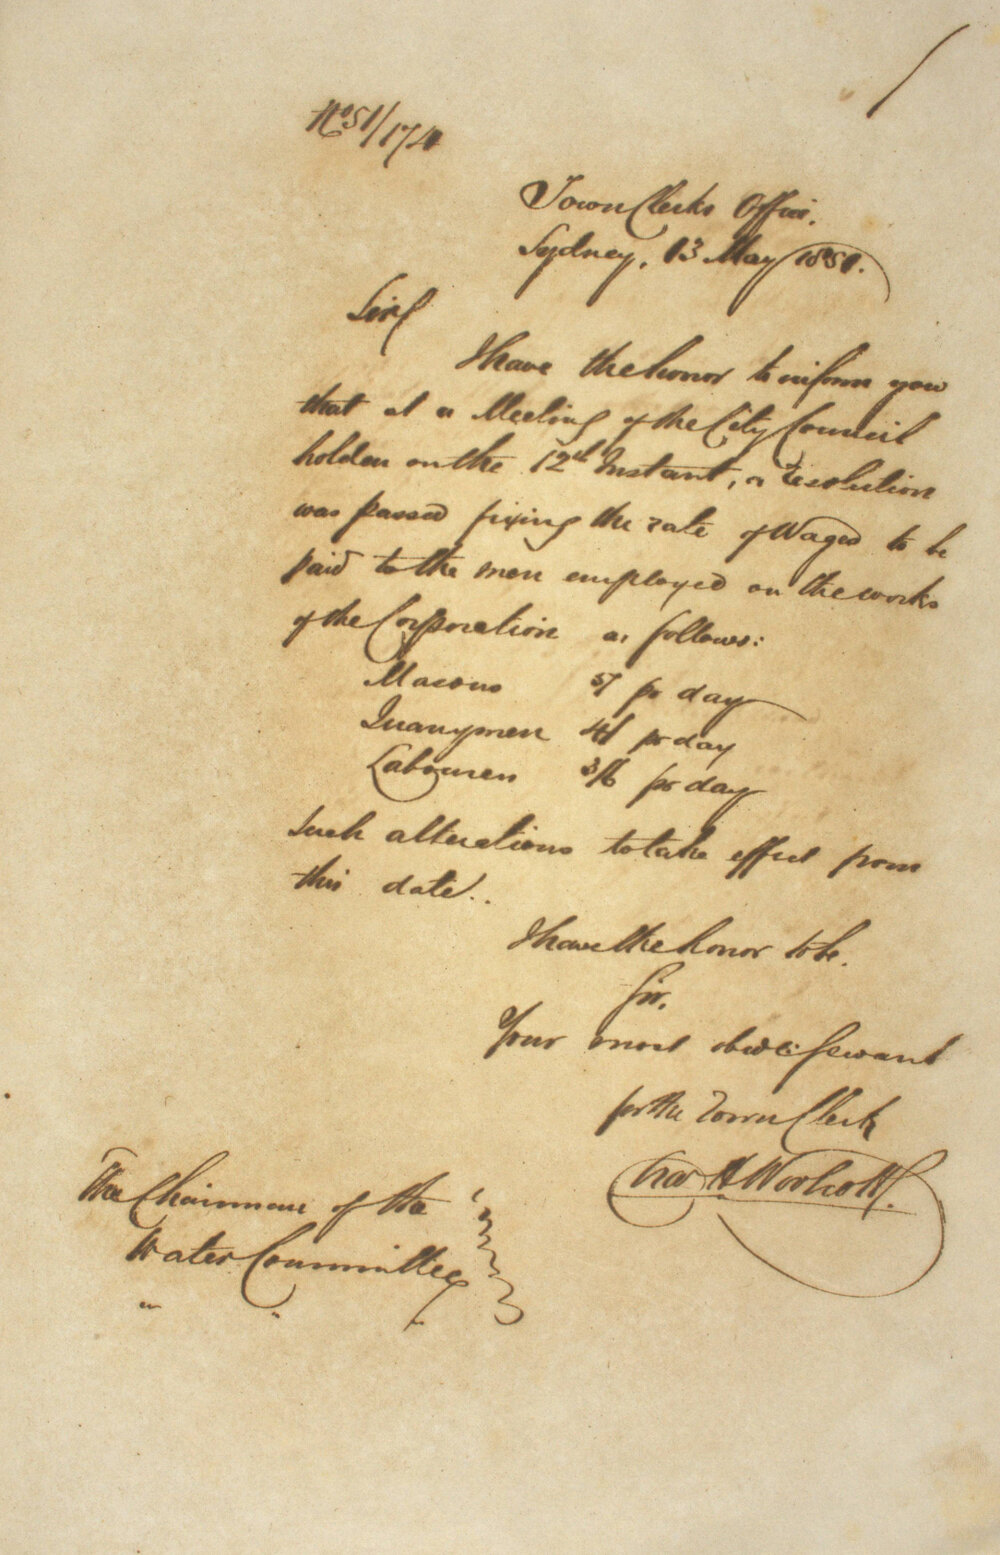 No 51/174
Town Clerks Office.
Sydney, 13 May 1851.
Sir
I have the honor to inform you
that at a Meeting of the City Council
holden on the 12th Instant, a resolution
was passed fixing the rate of Wages to be
paid to the men employed on the works
of the Corporation as follows:
Masons 5/ pr day
Quarrymen 4/ pr day
Labourers 3/6 pr day
Such alterations to take effect from
this date..
I have the honor to be.
Sir.
Your most obedt Servant
for the Town Clerk
Chas H Woolcott.
The Chairman of the
Water Committee